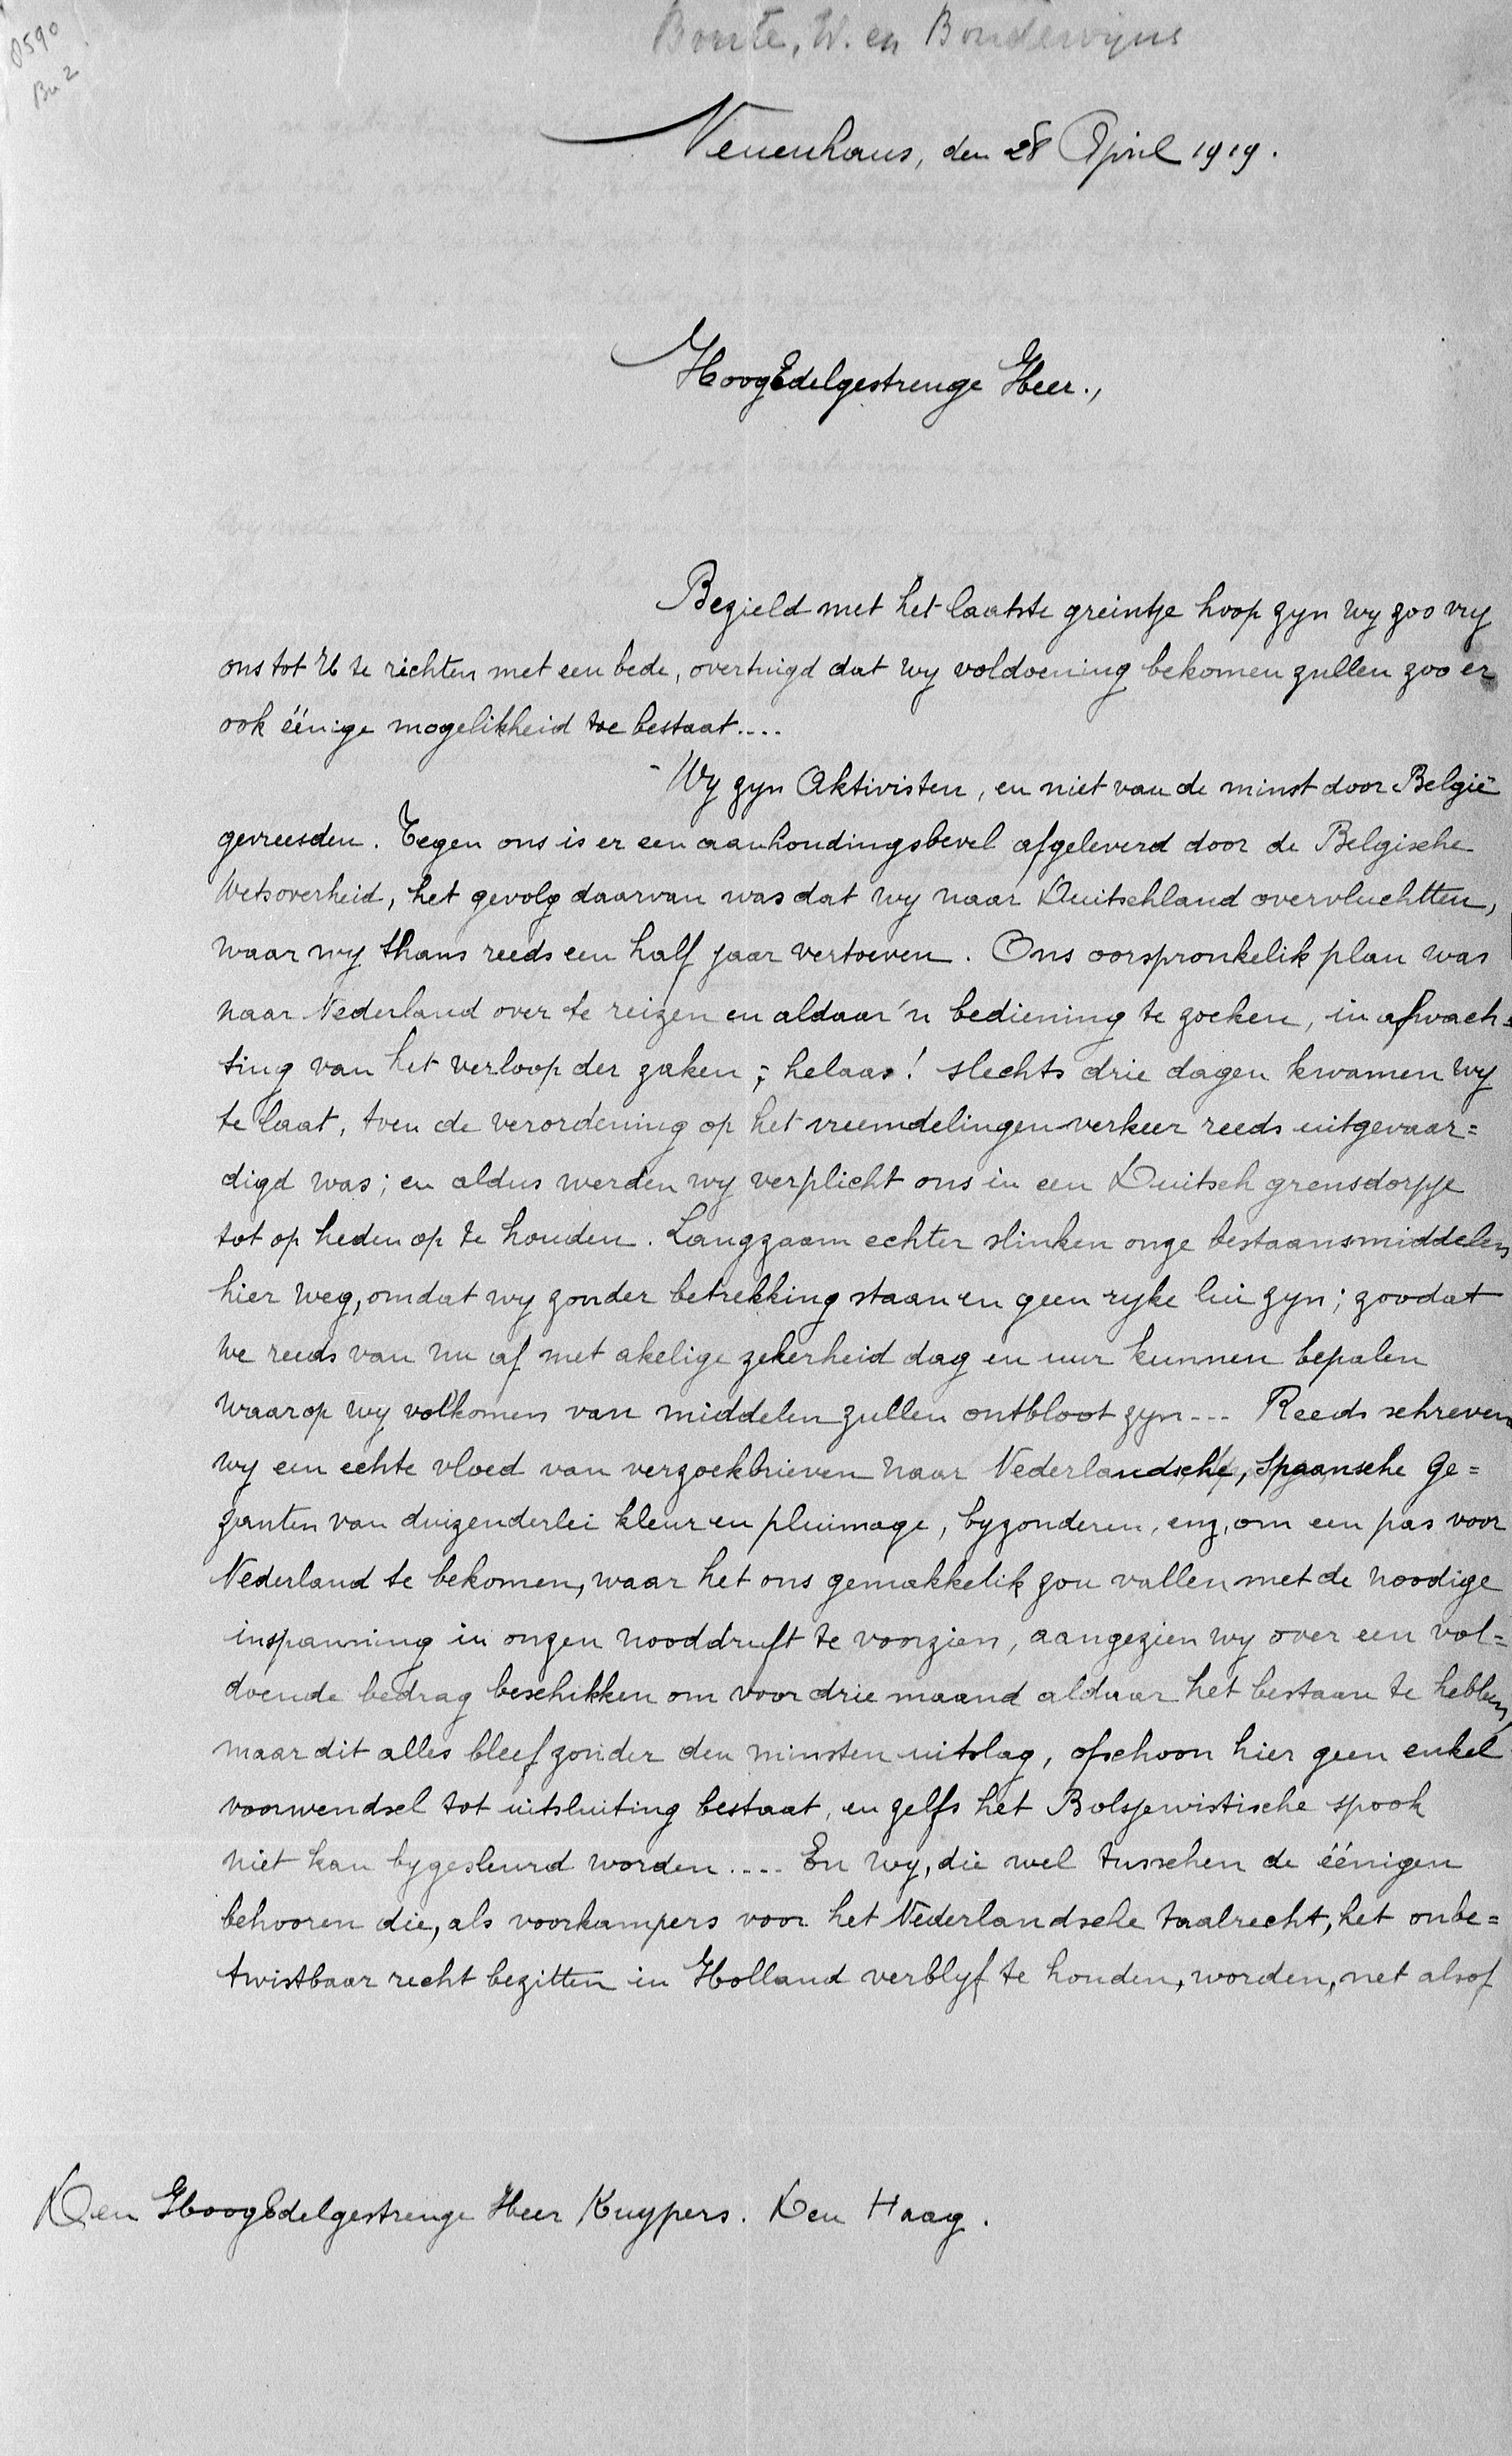 P590
Bu 2
Bonte, W. en Boudewijns
Neuenhaus, den 28 April 1919.
HoogEdelgestrenge Heer.,
Bezield met het laatste greintje hoop zyn wy zoo vry
ons tot U te richten met een bede, overtuigd dat wy voldoening bekomen zullen zoo er
ook éénige mogelikheid toe bestaat....
Wy zyn Aktivisten, en niet van de minst door België
gevreesden. Tegen ons is er een aanhoudingsbevel afgeleverd door de Belgische
Wetsoverheid, het gevolg daarvan was dat wy naar Duitschland overvluchtten,
waar wy thans reeds een half jaar vertoeven. Ons oorspronkelik plan was
naar Nederland over te reizen en aldaar 'n bediening te zoeken, in afwach=
ting van het verloop der zaken; helaas! slechts drie dagen kwamen wy
te laat, toen de verordening op het vreemdelingenverkeer reeds uitgevaar=
digd was; en aldus werden wy verplicht ons in een Duitsch grensdorpje
tot op heden op te houden. Langzaam echter slinken onze bestaansmiddelen
hier weg, omdat wy zonder betrekking staan en geen ryke lui zyn; zoodat
we reeds van nu af met akelige zekerheid dag en uur kunnen bepalen
waarop wy volkomen van middelen zullen ontbloot zyn... Reeds schreven
wy een echte vloed van verzoekbrieven naar Nederlandsche, Spaansche Ge=
zanten van duizenderlei kleur en pluimage, byzonderen, enz, om een pas voor
Nederland te bekomen, waar het ons gemakkelik zou vallen met de noodige
inspanning in onzen nooddruft te voorzien, aangezien wy over een vol=
doende bedrag beschikken om voor drie maand aldaar het bestaan te hebben,
maar dit alles bleef zonder den minsten uitslag, ofschoon hier geen enkel
voorwendsel tot uitsluiting bestaat, en zelfs het Bolsjewistische spook
niet kan bygesleurd worden.... En wy, die wel tusschen de éénigen
behooren die, als voorkampers voor het Nederlandsche taalrecht, het onbe=
twistbaar recht bezitten in Holland verblyf te houden, worden, net alsof
Den HoogEdelgestrenge Heer Kuypers. Den Haag.